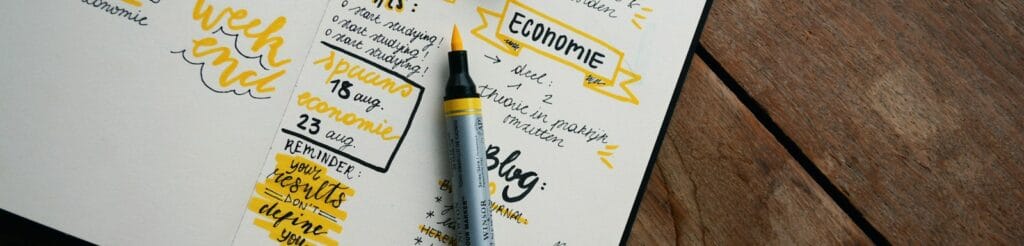 onomie
week
end
o start studying!
o start studying!
o start studying!
spaans
18 aug.
economie
23 aug.
REMINDER:
your
results
DON'T
define
you
ECONOMIE
→ deel:
1 2
theorie in praktijk
omzetten
Blog:
JOURNAL
WINSOR